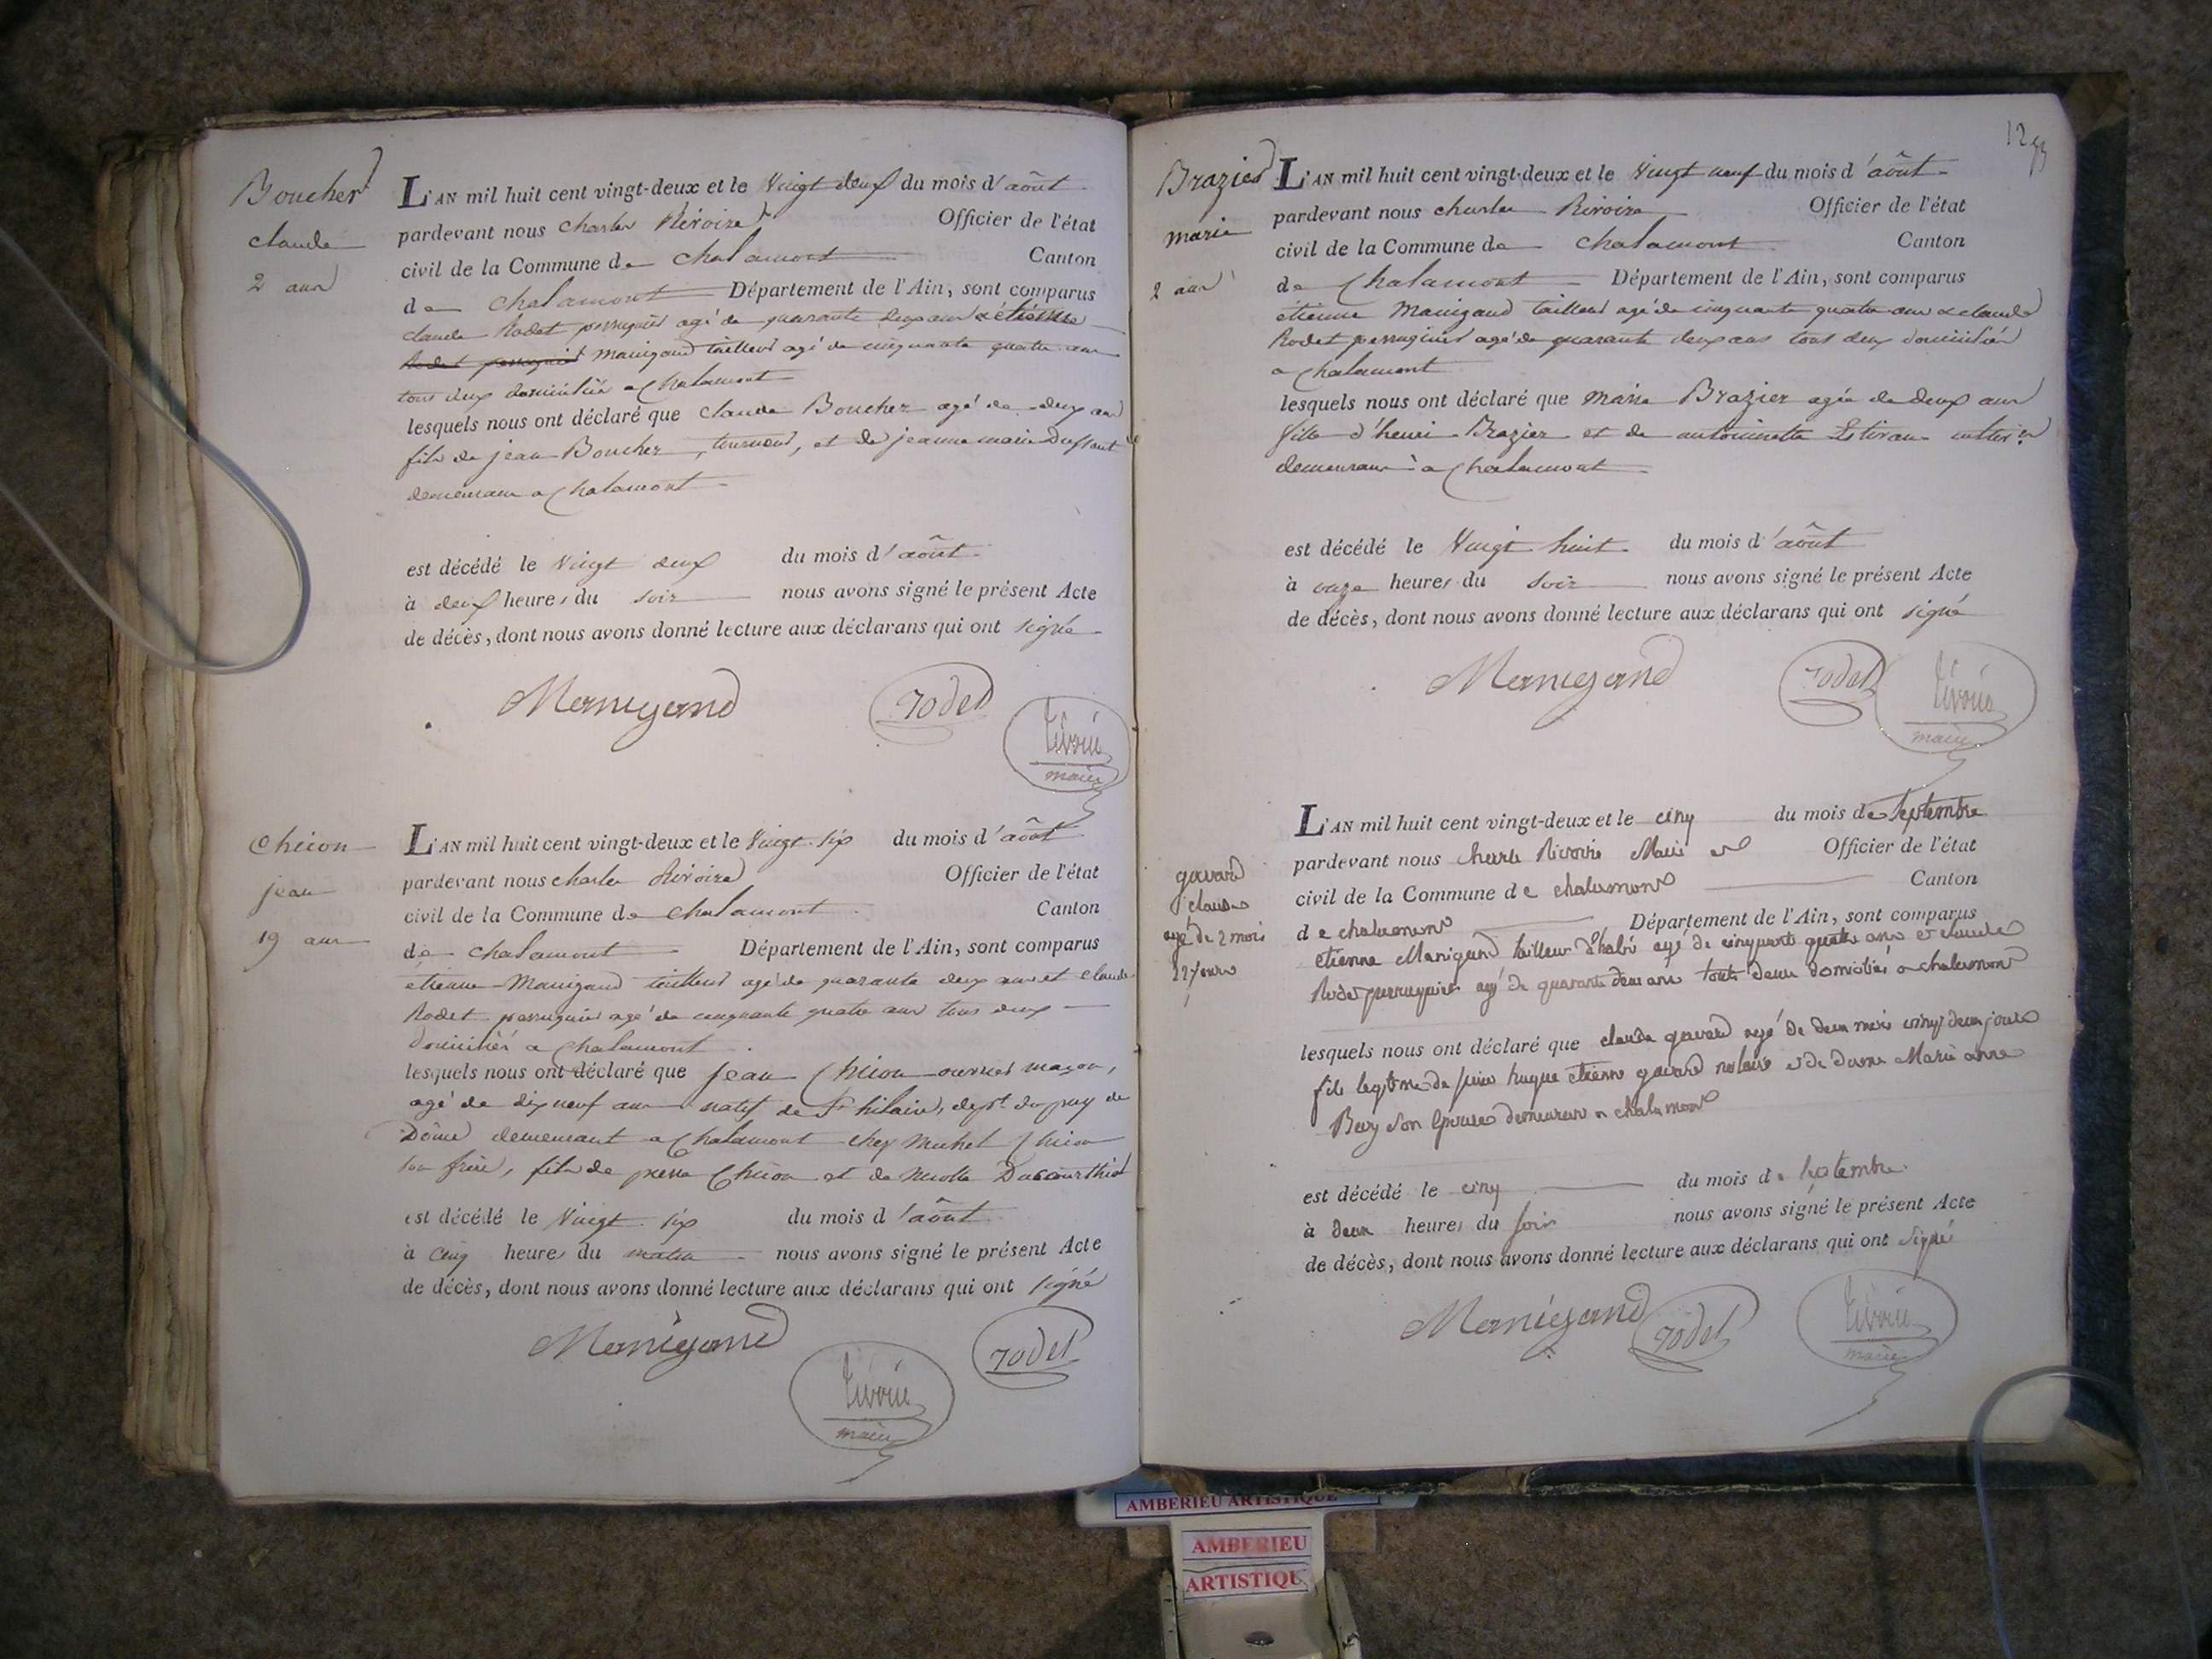 Boucher
claude
2 ans
L'AN mil huit cent vingt-deux et le Vingt deux du mois d'août
pardevant nous charles Rivoire Officier de l'état
civil de la Commune de Chalamont Canton
de Chalamont Département de l'Ain, sont comparus
claude Rodet perruquier agé de quarante deux ans & étienne
Rodet perruquier Manigand tailleur agé de cinquante quatre ans
tous deux domiciliés a Chalamont
lesquels nous ont déclaré que claude Boucher agé de deux ans
fils de jean Boucher, tourneur, et de jeanne marie
demeurans a Chalamont
est décédé le Vingt deux du mois d'août
à deux heures du soir nous avons signé le présent Acte
de décès, dont nous avons donné lecture aux déclarans qui ont signé
Manigand rodet
rivoire
maire
Chicon
jean
19 ans
L'AN mil huit cent vingt-deux et le Vingt six du mois d'août
pardevant nous charles Rivoire Officier de l'état
civil de la Commune de Chalamont Canton
de Chalamont Département de l'Ain, sont comparus
étienne Manigand tailleur agé de quarante deux ans et claude
Rodet perruquier agé de cinquante quatre ans tous deux
domiciliés a Chalamont
lesquels nous ont déclaré que jean Chicon ouvrier maçon,
agé de dix neuf ans natif de St hilaire, dept. du puy de
Dôme demeurant a Chalamont chez michel Chicon
son frère, fils de pierre Chicon et de
est décédé le Vingt six du mois d'août
à cinq heures du matin nous avons signé le présent Acte
de décès, dont nous avons donné lecture aux déclarans qui ont signé
Manigand rodet
rivoire
maire
12
Brazier
marie
2 ans
L'AN mil huit cent vingt-deux et le Vingt neuf du mois d'août
pardevant nous charles Rivoire Officier de l'état
civil de la Commune de Chalamont Canton
de Chalamont Département de l'Ain, sont comparus
étienne Manigand tailleur agé de cinquante quatre ans & claude
Rodet perruquier agé de quarante deux ans tous deux domiciliés
a Chalamont
lesquels nous ont déclaré que marie Brazier agée de deux ans
fille d'henri Brazier et de antoinette
demeurans à Chalamont
est décédé le Vingt huit du mois d'août
à onze heures du soir nous avons signé le présent Acte
de décès, dont nous avons donné lecture aux déclarans qui ont signé
Manigand rodet rivoire
maire
gavard
claude
agé de 2 mois
22 jours
L'AN mil huit cent vingt-deux et le cinq du mois de septembre
pardevant nous charle Rivoire Maire et Officier de l'état
civil de la Commune de chalamont Canton
de chalamont Département de l'Ain, sont comparus
etienne Manigand tailleur d'habit agé de cinquante quatre ans et claude
Rodet perruquier agé de quarante deux ans touts deux domiciliés a chalamont
lesquels nous ont déclaré que claude gavard agé de deux mois vingt deux jours
fils legitime de hugue etienne gavard notaire et de dame Marie anne
Bery son Epouse demeurant a chalamont
est décédé le cinq du mois de septembre
à deux heures du soir nous avons signé le présent Acte
de décès, dont nous avons donné lecture aux déclarans qui ont signé
Manigand rodet rivoire
maire
AMBERIEU ARTISTIQUE
AMBERIEU
ARTISTIQU